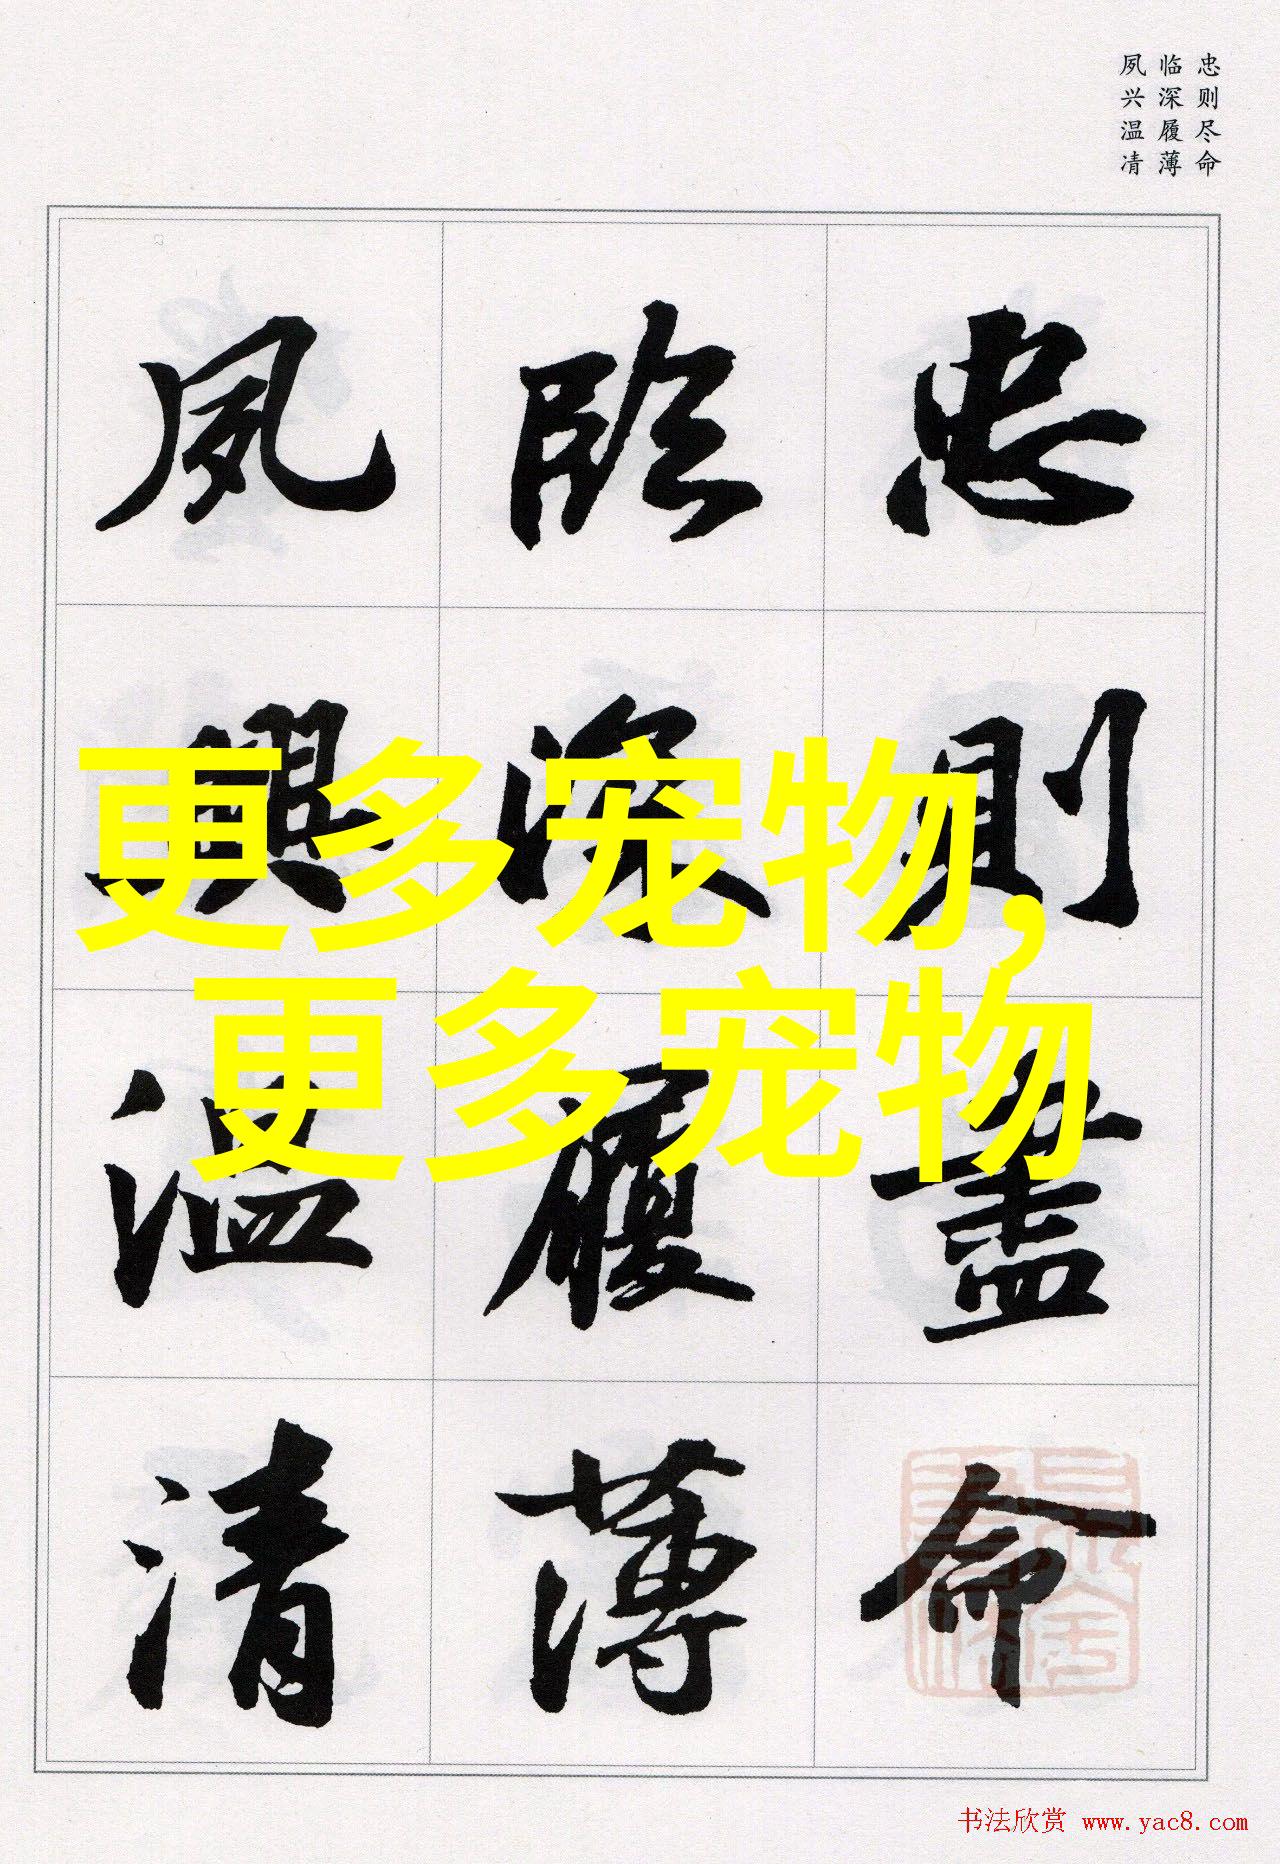 忠则尽命
临深履薄
夙兴温凊
忠則盡命
臨深履薄
夙興温清
更多宠物,
更多宠物
书法欣赏 www.yac8.com